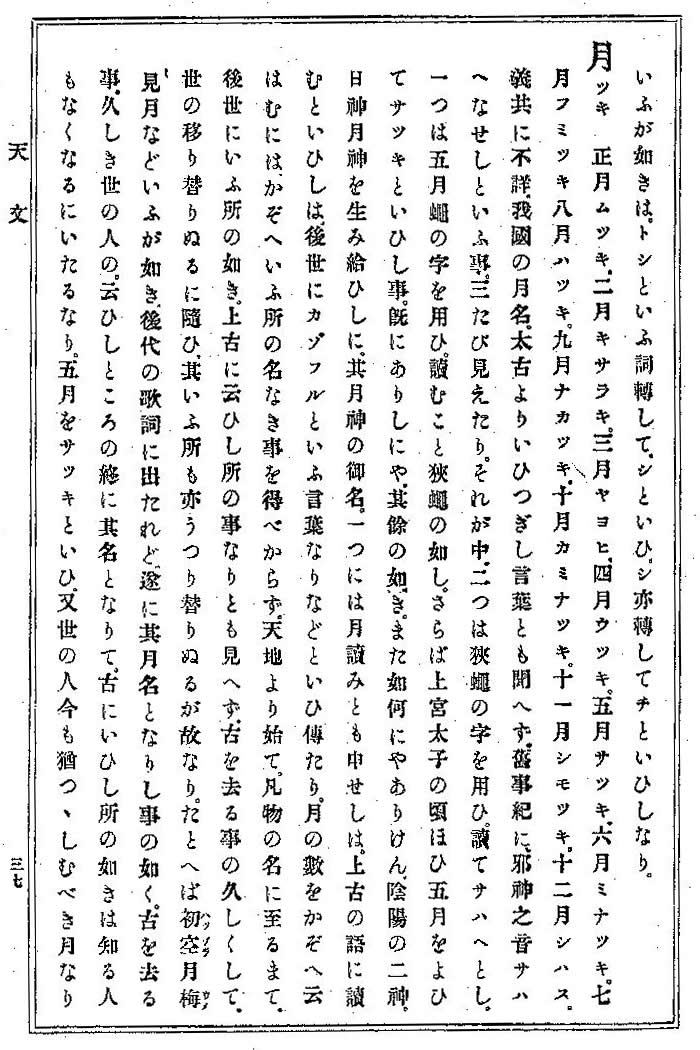 いふが如きは。トシといふ詞轉して。シといひ。シ亦轉してチといひしなり。
月ツキ 正月ムツキ。二月キサラキ。三月ヤヨヒ。四月ウツキ。五月サツキ。六月ミナツキ。七
月フミツキ八月ハツキ。九月ナカツキ。十月カミナツキ。十一月シモツキ。十二月シハス。
義共に不詳。我國の月名。太古よりいひつぎし言葉とも聞へず。舊事紀に。邪神之音サハ
へなせしといふ事。三たび見えたり。それが中。二つは狹蠅の字を用ひ。讀てサハへとし。
一つは五月蠅の字を用ひ。讀むこと狹蠅の如し。さらば上宮太子の頃ほひ五月をよひ
てサツキといひし事。既にありしにや。其餘の如き。また如何にやありけん。陰陽の二神。
日神月神を生み給ひしに。其月神の御名。一つには月讀みとも申せしは。上古の語に讀
むといひしは。後世にカゾフルといふ言葉なりなどといひ傳たり。月の數をかぞへ云
はむには。かぞへいふ所の名なき事を得べからず。天地より始て。凡物の名に至るまて。
後世にいふ所の如き。上古に云ひし所の事なりとも見へず。古を去る事の久しくして。
世の移り替りぬるに隨ひ。其いふ所も亦うつり替りぬるが故なり。たとへば初空月梅
見月などいふが如き。後代の歌詞に出たれど。遂に其月名となりし事の如く。古を去る
事。久しき世の人の。云ひしところの終に其名となりて。古にいひし所の如きは知る人
もなくなるにいたるなり。五月をサツキといひ。又世の人今も猶つゝしむべき月なり
天文
三七